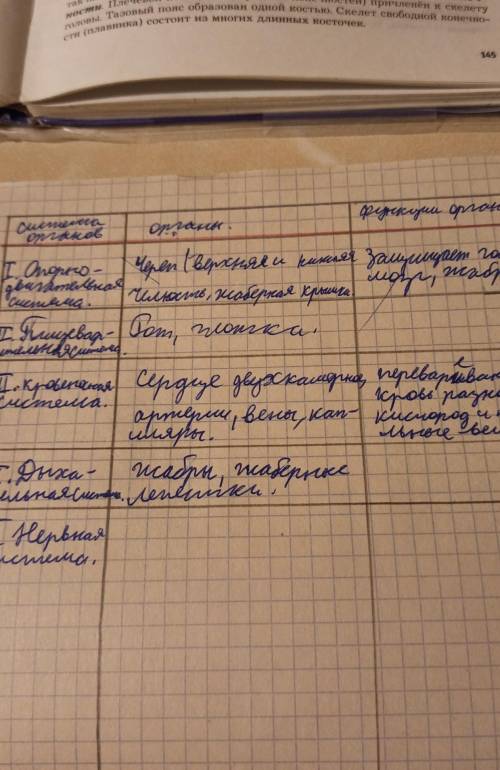 ности. Плечевой
причленён к скелету
головы. Тазовый пояс образован одной костью. Скелет свободной конечно-
сти (плавника) состоит из многих длинных косточек.
145
система органов
органы.
функции орган
I. Опорно-
двигательная
система.
Череп (верхняя и нижняя
челюсть, жаберная крышка.
Защищает
мозг, жабр
II. Пищевар-
ительная система.
Рот, глотка.
II. Кровеносная
система.
Сердце двухкамерное,
артерии, вены, кап-
иляры.
кровь
кислород и
льные
Дыха-
ельная система.
жабры, жаберные
лепестки.
Нервная
истема.